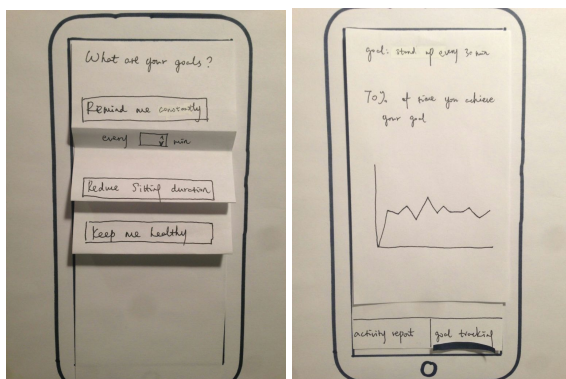 What are your goals?
Remind me constantly
every min
Reduce Sitting duration
Keep me healthy
goal: stand up every 30 min
70% of time you achieve
your goal
activity report
goal tracking